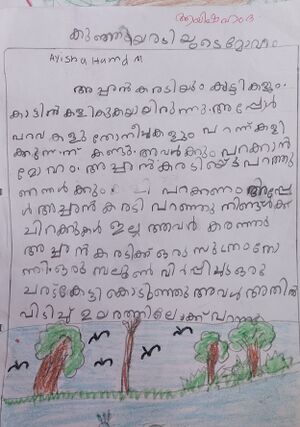 ആയിഷ ഹംദ
കുഞ്ഞികരടിയുടെ മോഹം
Ayisha Hamd M
അച്ഛൻ കരടിയും കുട്ടികളും
കാട്ടിൽ കളിക്കുകയായിരുന്നു. അപ്പോൾ
പറവകളും തേനീച്ചകളും പറന്ന് കളി
ക്കുന്നത് കണ്ടു. അവർക്കും പറക്കാൻ
മോഹം. അച്ഛൻ കരടിയോട് പറഞ്ഞു
ഞങ്ങൾക്കും പറക്കണം അപ്പോ
ൾ അച്ഛൻ കരടി പറഞ്ഞു നിങ്ങൾക്ക്
ചിറകുകൾ ഇല്ല അവർ കരഞ്ഞു
അച്ഛൻ കരടിക്ക് ഒരു സൂത്രം തോ
ന്നി. ഒരു ബലൂൺ വീർപ്പിച്ച് ഒരു
ചരട് കെട്ടി കൊടുത്തു അവർ അതിൽ
പിടിച്ച് ഉയരത്തിലേക്ക് പറന്നു